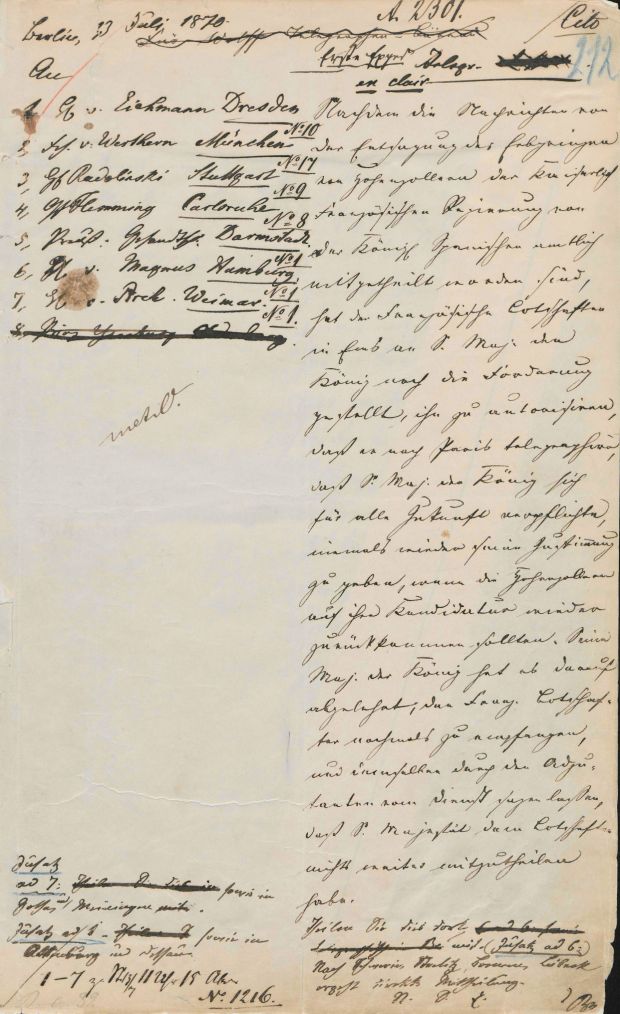 A. 2301.
Cito
Berlin, 13 Juli 1870.
Telegr.
212
An
en clair
1, v. Eichmann Dresden
2, v. Werthern München No 10
3, Gf Radolinski Stuttgart No 17
4, Gf Flemming Carlsruhe No 9
5, Preuß. Gesandtsch. Darmstadt No 8
6, v. Magnus Hamburg No 1
7, Weimar No 1
No 1.
Nachdem die Nachrichten von
der Entsagung des Erbprinzen
von Hohenzollern der Kaiserlich
Französischen Regierung von
der Königl Spanischen amtlich
mitgetheilt worden sind,
hat der Französische Botschafter
in Ems an S. Maj. den
König noch die Forderung
gestellt, ihn zu autorisiren,
daß er nach Paris telegraphire,
daß S. Maj. der König sich
für alle Zukunft verpflichte,
niemals wieder seine Zustimmung
zu geben, wenn die Hohenzollern
auf ihre Kandidatur wieder
zurückkommen sollten. Seine
Maj. der König hat es darauf
abgelehnt, den Franz. Botschaf-
ter nochmals zu empfangen,
und demselben durch den Adju-
tanten vom Dienst sagen lassen,
daß S. Majestät dem Botschafter
nichts weiter mitzutheilen
habe.
Theilen Sie dies dort
mit. (Zusatz ad 6:
Nach Schwerin, Strelitz, Bremen, Lübeck
ergeht direkte Mittheilung.
N. D.
Zusatz
ad 7: sowie in
Gotha und Meiningen
Zusatz ad 1 sowie in
Altenburg und Dessau
1-7 11 Uhr 15
No 1216.